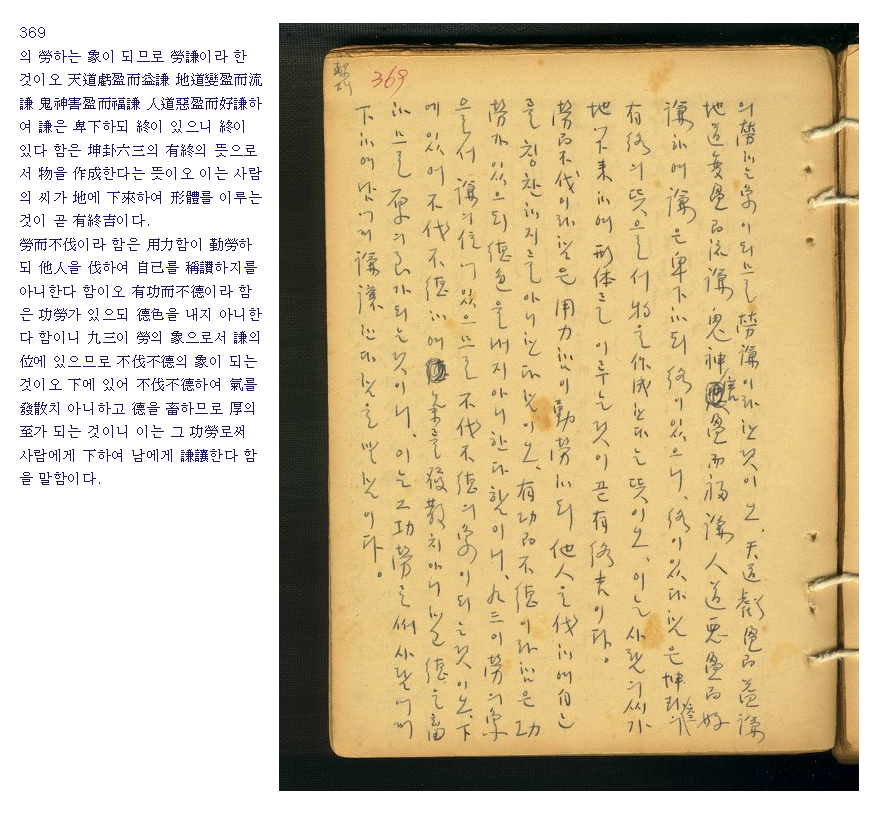 369
의 勞하는 象이 되므로 勞謙이라 한
것이오 天道虧盈而益謙 地道變盈而流
謙 鬼神害盈而福謙 人道惡盈而好謙하
여 謙은 卑下하되 終이 있으니 終이
있다 함은 坤卦六三의 有終의 뜻으로
서 物을 作成한다는 뜻이오 이는 사람
의 씨가 地에 下來하여 形體를 이루는
것이 곧 有終吉이다.
勞而不伐이라 함은 用力함이 勤勞하
되 他人을 伐하여 自己를 稱讚하지를
아니한다 함이오 有功而不德이라 함
은 功勞가 있으되 德色을 내지 아니한
다 함이니 九三이 勞의 象으로서 謙의
位에 있으므로 不伐不德의 象이 되는
것이오 下에 있어 不伐不德하여 氣를
發散치 아니하고 德을 畜하므로 厚의
至가 되는 것이니 이는 그 功勞로써
사람에게 下하여 남에게 謙讓한다 함
을 말함이다.
369
의 勞하는 象이 되므로 勞謙이라 한 것이오. 天道虧盈而益謙
地道變盈而流謙 鬼神害盈而福謙 人道惡盈而好
謙하여 謙은 卑下하되 終이 있으니, 終이 있다 함은 坤卦六三의
有終의 뜻으로서 物을 作成한다는 뜻이오, 이는 사람의 씨가
地에 下來하여 形体를 이루는 것이 곧 有終吉이다.
勞而不伐이라 함은 用力함이 勤勞하되 他人을 伐하여 自己
를 칭찬하지를 아니한다 함이오, 有功而不德이라 함은 功
勞가 있으되 德色을 내지 아니한다 함이니, 九三이 勞의 象
으로서 謙의 位에 있으므로 不伐不德의 象이 되는 것이오, 下
에 있어 不伐不德하여 氣를 發散치 아니하고 德을 畜
하므로 厚의 至가 되는 것이니, 이는 그 功勞로써 사람에게
下하여 남에게 謙讓한다 함을 말함이다.